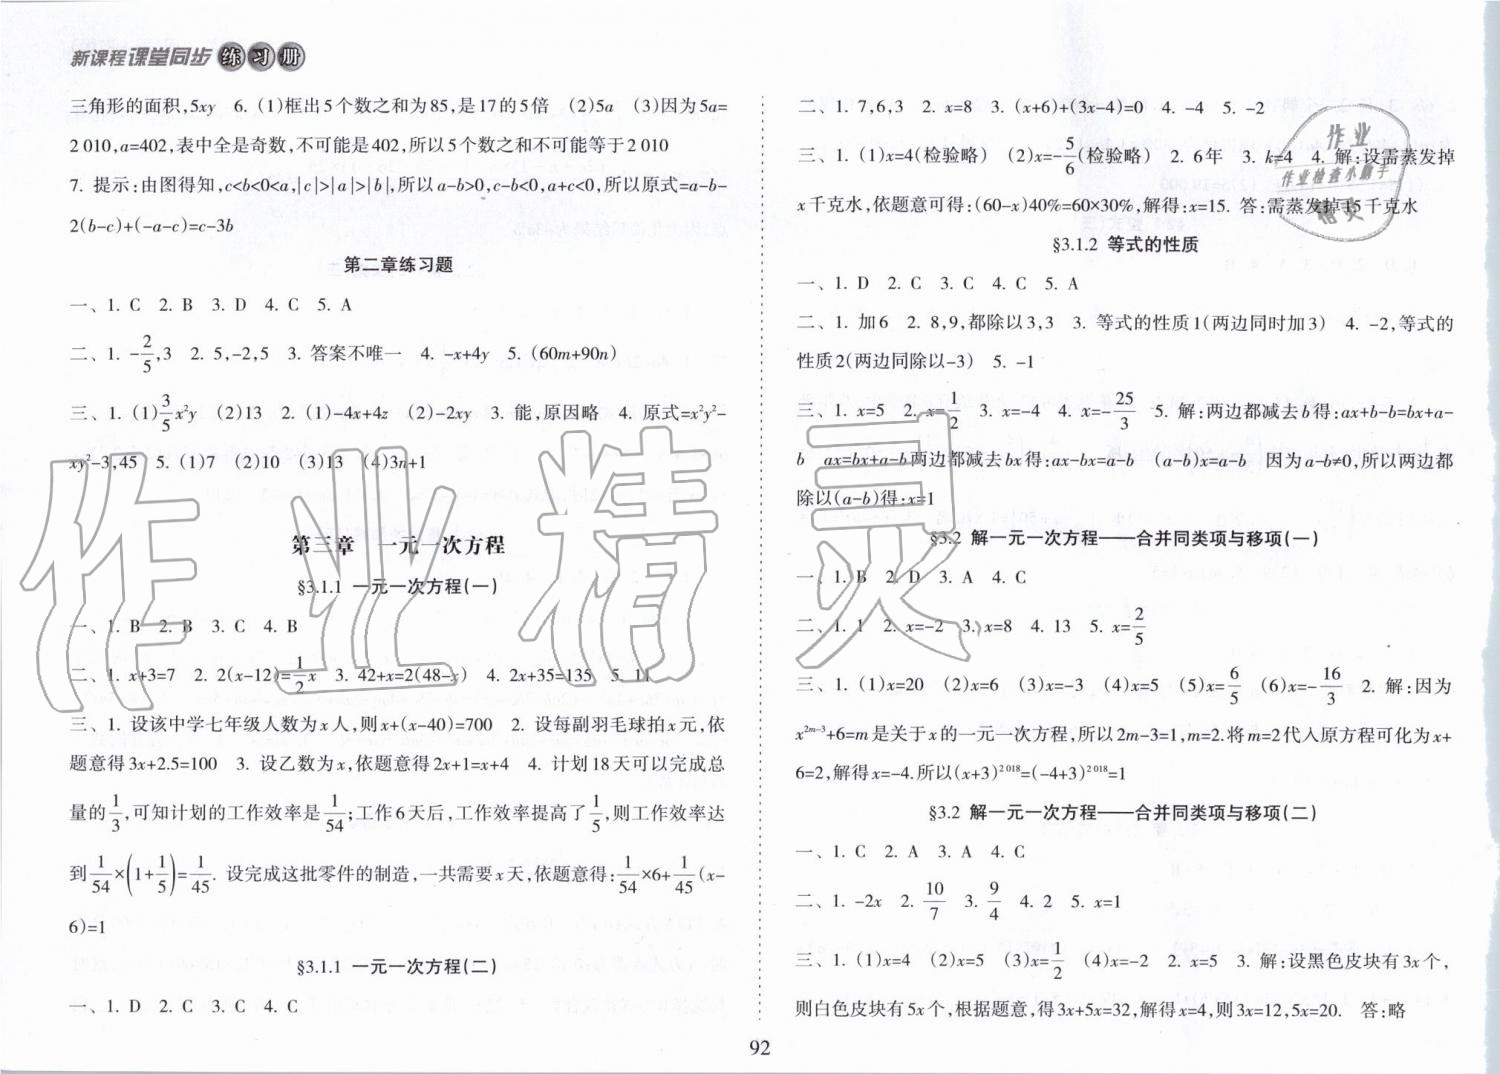 新课程课堂同步练习册
三角形的面积,5xy 6. (1)框出5个数之和为85,是17的5倍 (2)5a (3)因为5a=
2 010,a=402,表中全是奇数,不可能是402,所以5个数之和不可能等于2 010
7. 提示:由图得知,c<b<0<a,|c|>|a|>|b|,所以a-b>0,c-b<0,a+c<0,所以原式=a-b-
2(b-c)+(-a-c)=c-3b
第二章练习题
一、1. C 2. B 3. D 4. C 5. A
二、1. -2/5,3 2. 5,-2,5 3. 答案不唯一 4. -x+4y 5. (60m+90n)
三、1. (1)3/5x²y (2)13 2. (1)-4x+4z (2)-2xy 3. 能,原因略 4. 原式=x²y²-
xy²-3,45 5. (1)7 (2)10 (3)13 (4)3n+1
第三章 一元一次方程
§3.1.1 一元一次方程(一)
一、1. B 2. B 3. C 4. B
二、1. x+3=7 2. 2(x-12)=1/2x 3. 42+x=2(48-x) 4. 2x+35=135 5. 11
三、1. 设该中学七年级人数为x人,则x+(x-40)=700 2. 设每副羽毛球拍x元,依
题意得3x+2.5=100 3. 设乙数为x,依题意得2x+1=x+4 4. 计划18天可以完成总
量的1/3,可知计划的工作效率是1/54;工作6天后,工作效率提高了1/5,则工作效率达
到1/54×(1+1/5)=1/45. 设完成这批零件的制造,一共需要x天,依题意得:1/54×6+1/45(x-
6)=1
§3.1.1 一元一次方程(二)
一、1. D 2. C 3. C 4. C
二、1. 7,6,3 2. x=8 3. (x+6)+(3x-4)=0 4. -4 5. -2
三、1. (1)x=4(检验略) (2)x=-5/6(检验略) 2. 6年 3. k=4 4. 解:设需蒸发掉
x千克水,依题意可得:(60-x)40%=60×30%,解得:x=15. 答:需蒸发掉15千克水
§3.1.2 等式的性质
一、1. D 2. C 3. C 4. C 5. A
二、1. 加6 2. 8,9,都除以3,3 3. 等式的性质1(两边同时加3) 4. -2,等式的
性质2(两边同除以-3) 5. -1
三、1. x=5 2. x=1/2 3. x=-4 4. x=-25/3 5. 解:两边都减去b得:ax+b-b=bx+a-
b ax=bx+a-b两边都减去bx得:ax-bx=a-b (a-b)x=a-b 因为a-b≠0,所以两边都
除以(a-b)得:x=1
§3.2 解一元一次方程——合并同类项与移项(一)
一、1. B 2. D 3. A 4. C
二、1. 1 2. x=-2 3. x=8 4. 13 5. x=2/5
三、1. (1)x=20 (2)x=6 (3)x=-3 (4)x=5 (5)x=6/5 (6)x=-16/3 2. 解:因为
x²ᵐ⁻³+6=m是关于x的一元一次方程,所以2m-3=1,m=2.将m=2代入原方程可化为x+
6=2,解得x=-4.所以(x+3)²⁰¹⁸=(-4+3)²⁰¹⁸=1
§3.2 解一元一次方程——合并同类项与移项(二)
一、1. C 2. A 3. A 4. C
二、1. -2x 2. 10/7 3. 9/4 4. 2 5. x=1
三、1. (1)x=4 (2)x=5 (3)x=1/2 (4)x=-2 2. x=5 3. 解:设黑色皮块有3x个,
则白色皮块有5x个,根据题意,得3x+5x=32,解得x=4,则3x=12,5x=20. 答:略
92
作业精灵
作业
作业检查小助手
精灵